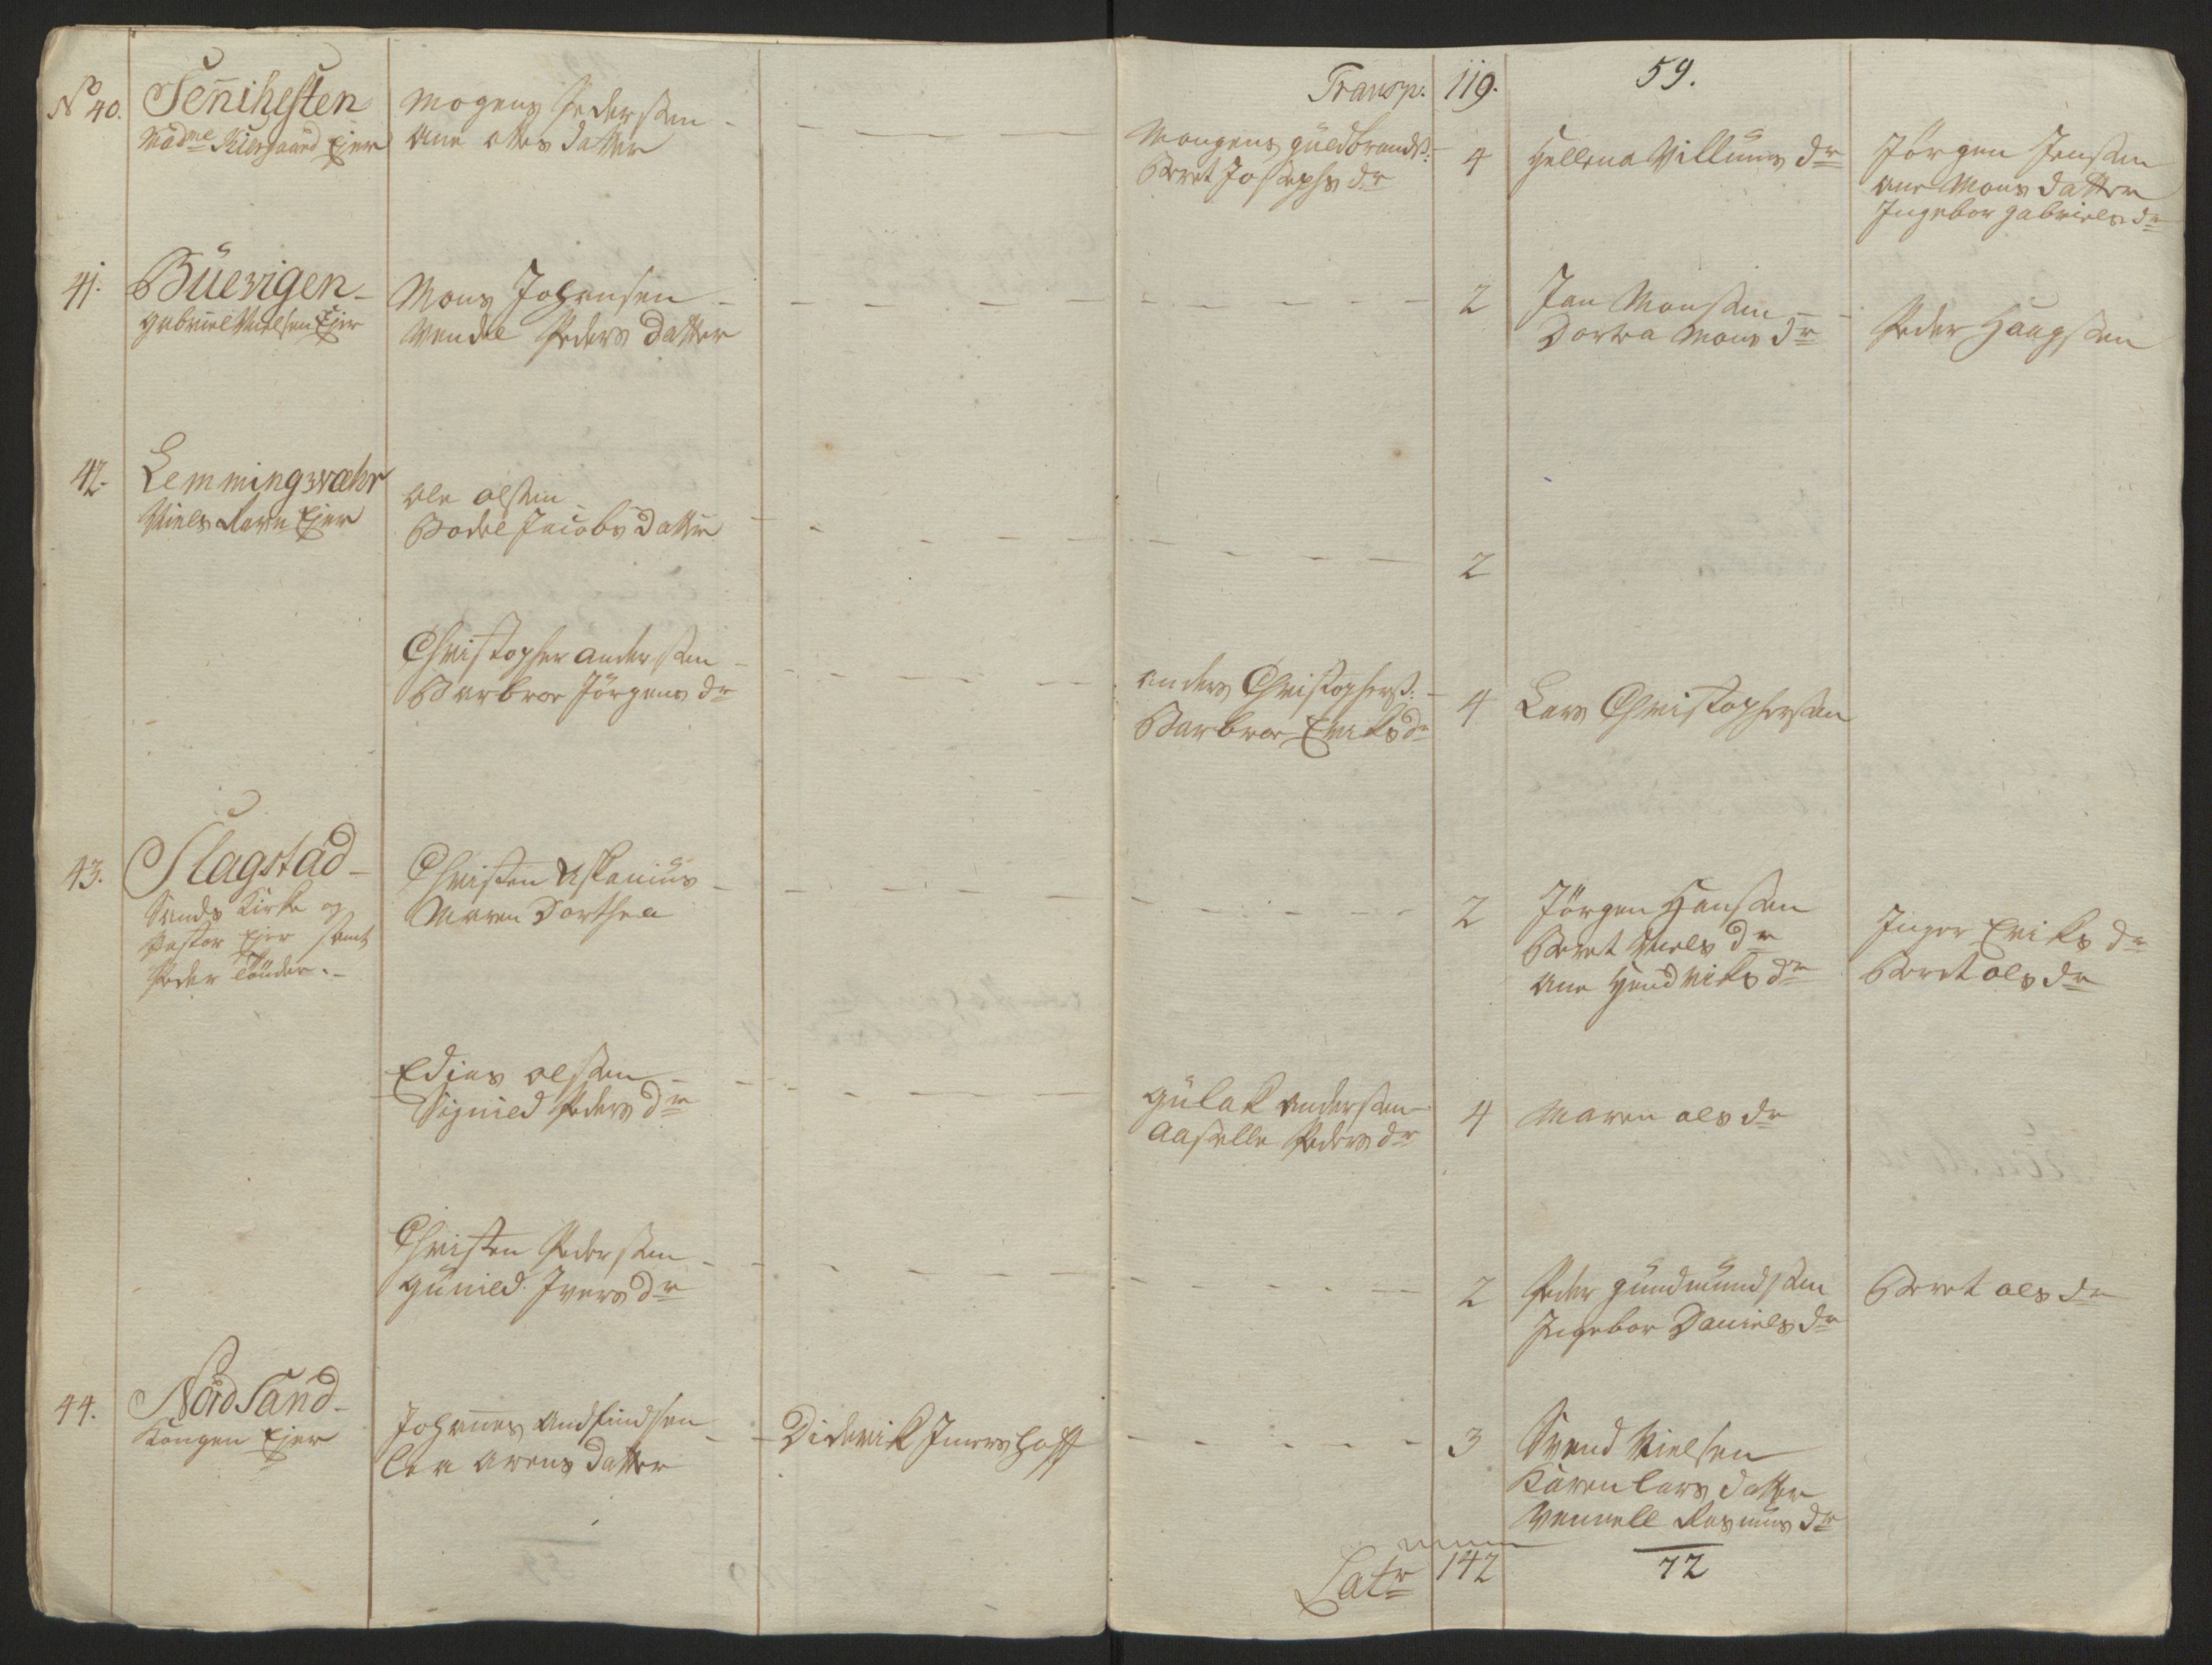 Transp. 119. 59.
No 40. Sennihesten
Madme Kiergaard Ejer
Mogens Pedersen
Ane Ottes datter
Mongens Guldbrands:
Beret Josephs dr
4
Hellena Villums dr
Jörgen Jensen
Ane Mons datter
Ingebor Gabriels dr
41. Büevigen
Gabriel Nielsen Ejer
Mons Johansen
Vendel Peders datter
2
Jan Monsen
Dortea Mons dr
Peder Haagsen
42. Lemmingsvæhr
Niels Ravn Ejer
Ole Olsen
Bodel Jacobs datter
2
Christopher Andersen
Barbroe Jörgens dr
Anders Christophers:
Barbroe Eriks dr
4
Lars Christophersen
43. Slagstad
Sands Kirke og
Pastor Ejer samt
Peder Tönder.
Christen Askanius
Maren Dorthea
2
Jörgen Hansen
Beret Niels dr
Ane Hendriks dr
Inger Eriks dr
Beret Ols dr
Edias Olsen
Signied Peders dr
Gulak Andersen
Aaselle Peders dr
4
Maren Ols dr
Christen Pedersen
Günied Ivers dr
2
Peder Gundmundsen
Ingebor Daniels dr
Beret Ols dr
44. Nord Sand
Kongen Ejer
Johannes Andfindsen
Lea Arens datter
Diderik Imershoff
3
Svend Nielsen
Karen Lars datter
Vennell Rasmus dr
Latr 142 72